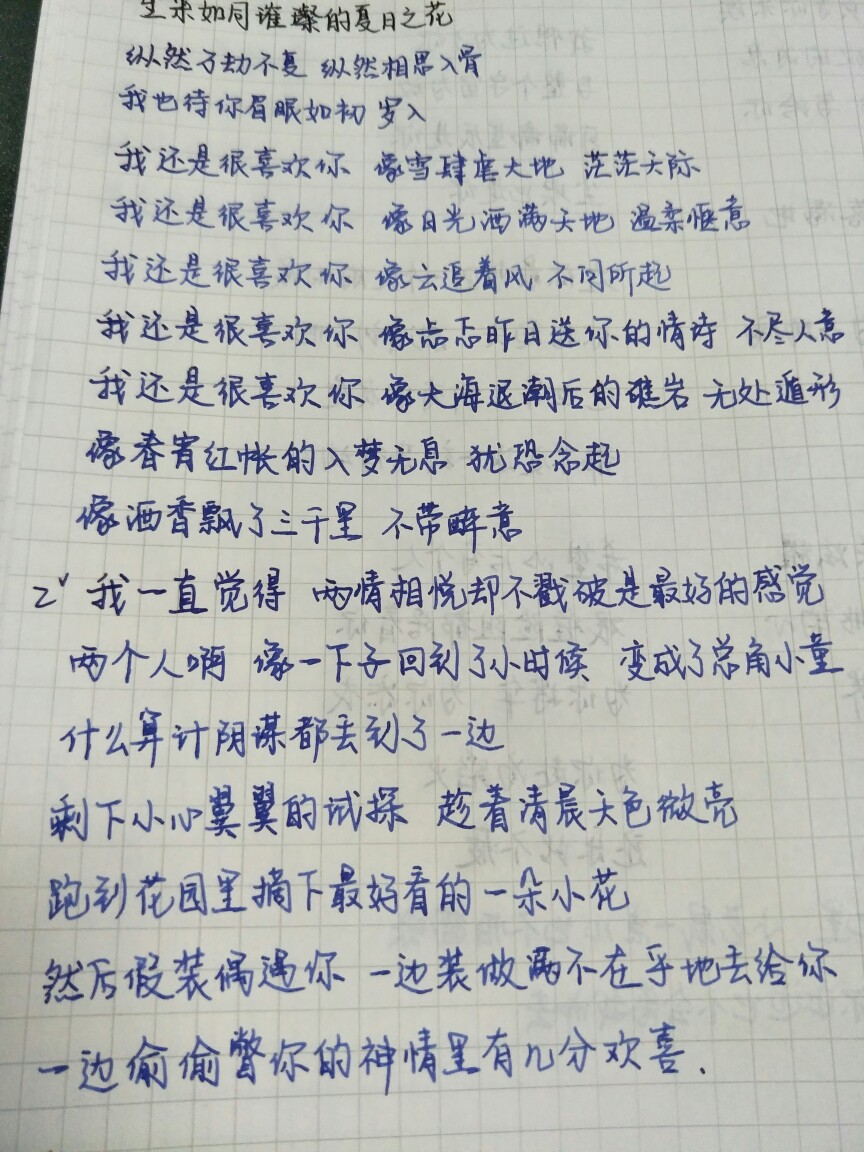 生来如同璀璨的夏日之花
纵然万劫不复 纵然相思入骨
我也待你眉眼如初 岁入
我还是很喜欢你 像雪肆虐大地 茫茫天际
我还是很喜欢你 像日光洒满天地 温柔惬意
我还是很喜欢你 像云追着风 不问所起
我还是很喜欢你 像忐忑昨日送你的情诗 不尽人意
我还是很喜欢你 像大海退潮后的礁岩 无处遁形
像春宵红帐的入梦无息 犹恐念起
像酒香飘了三千里 不带醉意
2、我一直觉得 两情相悦却不戳破是最好的感觉
两个人啊 像一下子回到了小时候 变成了总角小童
什么算计阴谋都丢到了一边
剩下小心翼翼的试探 趁着清晨天色微亮
跑到花园里摘下最好看的一朵小花
然后假装偶遇你 一边装做满不在乎地去给你
一边偷偷瞥你的神情里有几分欢喜.